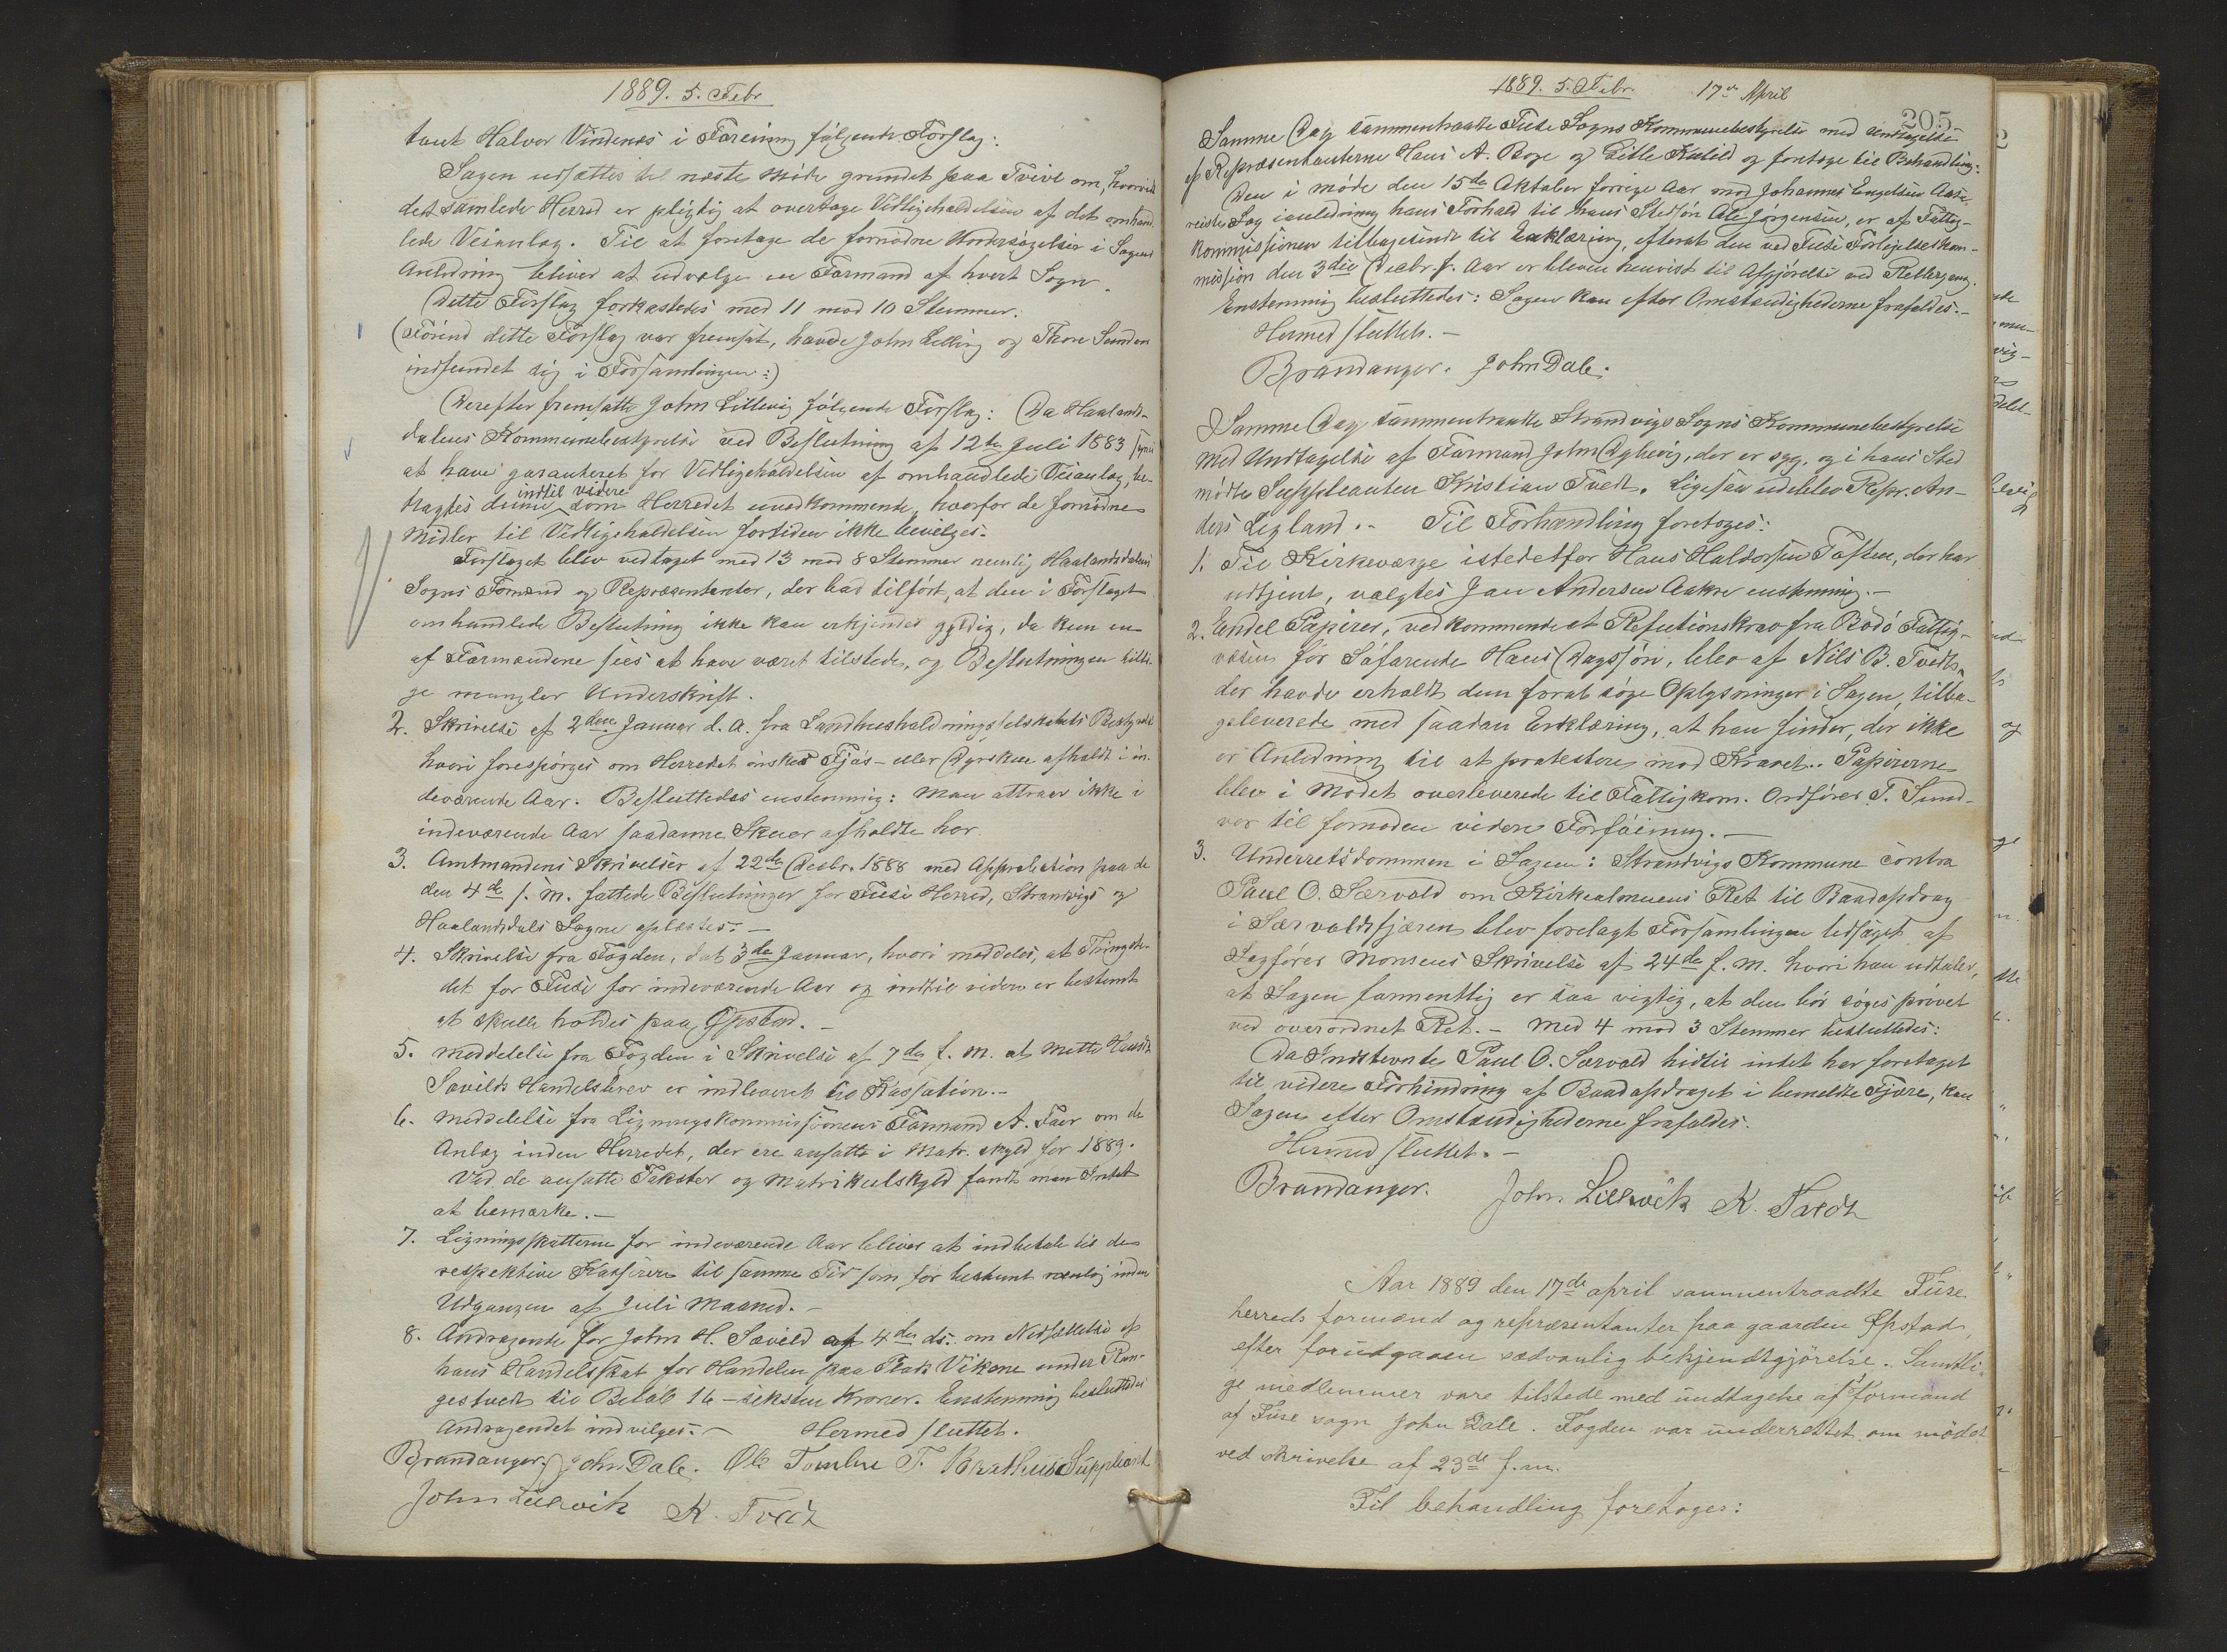 1889. 5. Febr
tant Halvor Vindenes i Forening følgende Forslag:
Sagen udsættes til næste Møde grundet paa Tvivl om, hvorvidt
det samlede Herred er pligtig at overtage Vedligeholdelsen af det omhand-
lede Veianlæg. Til at foretage de fornødne Undersøgelser i Sagens
Anledning bliver at udvælge en Formand af hvert Sogn.
Dette Forslag forkastedes med 11 mod 10 Stemmer.
(Førend dette Forslag var fremsat, havde John Lekving og Thore Sunden
indfundet sig i Forsamlingen:)
Derefter fremsatte John Lillevig følgende Forslag: Da Haalands-
dalens Kommunebestyrelse ved Beslutning af 12te Juli 1883 synes
at have garanteret for Vedligeholdelsen af omhandlede Veianlæg, be-
tragtes denne indtil videre som Herredet uvedkommende, hvorfor de fornødne
Midler til Vedligeholdelsen fortiden ikke bevilges.
Forslaget blev vedtaget med 13 mod 8 Stemmer nemlig Haalandsdalens
Sogns Formænd og Repræsentanter, der bad tilført, at den i Forslaget
omhandlede Beslutning ikke kan erkjendes gyldig, da kun en
af Formændene sees at have været tilstede, og Beslutningen tilli-
ge mangler Underskrift.
2. Skrivelse af 2den Januar d. A. fra Landhusholdningsselskabets Bestyrelse
hvori forespørges om Herredet ønsker Fjøs- eller Dyrskue afholdt i in-
deværende Aar. Besluttedes enstemmig: Man attraar ikke i
indeværende Aar saadanne Skuer afholdte her.
3. Amtmandens Skrivelser af 22de Decbr. 1888 med Approbation paa de
den 4de s. M. fattede Beslutninger for Fuse Herred, Strandvigs og
Haalandsdals Sogne oplæstes.-
4. Skrivelse fra Fogden, dat 3de Januar, hvori meddeles, at Thingste-
det for Fuse for indeværende Aar og indtil videre er bestemt
at skulle holdes paa Øpstad.-
5. Meddelelse fra Fogden i Skrivelse af 7de f. M. at Mette Hansdt
Søvilds Handelsbrev er indleveret til Kassation.-
6. Meddelelse fra Ligningskommissionens Formand A. Favr om de
Anlæg inden Herredet, der ere ansatte i Matr. skyld for 1889.
Ved de ansatte Takster og Matrikulskyld fandt man Intet
at bemærke.-
7. Ligningsskatterne for indeværende Aar bliver at indbetale til de
respektive Kasserere til samme Tid som før bestemt nemlig inden
Udgangen af Juli Maaned.-
8. Andragende for John H. Søvild af 4de ds. om Nedsættelse af
hans Handelsskat for Handelen paa Vikene under Ran-
gestvedt til Beløb 16 - seksten Kroner. Enstemmig besluttedes
Andragendet indvilges.- Hermed sluttet.
Brandanger. John Dale. Ole T. Brathus Suppleant
John Lillevik K. Tvedt
1889. 5. Febr. 17de April
205
Samme Dag sammentraadte Fuse Sogns Kommunebestyrelse med Undtagelse
af Repræsentanterne Hans A. Boge og Gitle Kvitid og foretoges til Behandling:
Den i Møde den 15de Oktober forrige Aar mod Johannes Engelsen Aase
reiste Sag i anledning hans Forhold til hans Stedsøn Ole Jørgensen, er af Fattig-
kommissionen tilbagesendt til Erklæring, efterat den ved Fuse Forligelseskom-
mission den 3die Decbr. f. Aar er bleven henvist til Afgjørelse ved Rettergang.
Enstemmig besluttedes: Sagen kan efter Omstændighederne frafaldes.-
Hermed sluttet.-
Brandanger. John Dale.
Samme Dag sammentraadte Strandvigs Sogns Kommunebestyrelse
med Undtagelse af Formand John Dyhevig, der er syg, og i hans Sted
mødte Suppleanten Kristian Tvedt. Ligesaa udeblev Repr. An-
ders Legland.- Til Forhandling foretoges:
1. Til Kirkeværge istedetfor Hans Haldorsen Toften, der har
udtjent, valgtes Jan Andersen Aakre enstemmig.-
2. Endel Papirer, vedkommende et Refutionskrav fra Bodø Fattig-
væsen for Søfarende Hans Dagssøn, blev af Nils B. Tvedt,
der havde erholdt dem forat søge Oplysninger i Sagen, tilba-
geleverede med saadan Erklæring, at han finder, der ikke
er Anledning til at protestere mod Kravet. Papirerne
blev i Mødet overleverede til Fattigkom. Ordfører T. Sund-
vor til fornøden videre Forføining.-
3. Underretsdommen i Sagen: Strandvigs Kommune contra
Paul O. Særvold om Kirkealmuens Ret til Baadopdrag
i Særvoldsfjæren blev forelagt Forsamlingen ledsaget af
Sagfører Monsens Skrivelse af 24de f. M. hvori han udtaler,
at Sagen formentlig er saa vigtig, at den bør søges prøvet
ved overordnet Ret.- Med 4 mod 3 Stemmer besluttedes:
Da Indstevnte Paul O. Særvold hidtil intet har foretaget
til videre Forhindring af Baadopdraget i bemeldte Fjære, kan
Sagen efter Omstændighederne frafaldes.
Hermed sluttet.-
Brandanger. John Lillevik K. Tvedt
Aar 1889 den 17de april sammentraadte Fuse
herreds formænd og repræsentanter paa gaarden Øpstad,
efter forudgaaen sædvanlig bekjendtgjørelse. Samtli-
ge medlemmer vare tilstede med undtagelse af formand
af Fuse sogn John Dale. Fogden var underrettet om mødet
ved skrivelse af 23de f.m.
Til behandling foretoges: